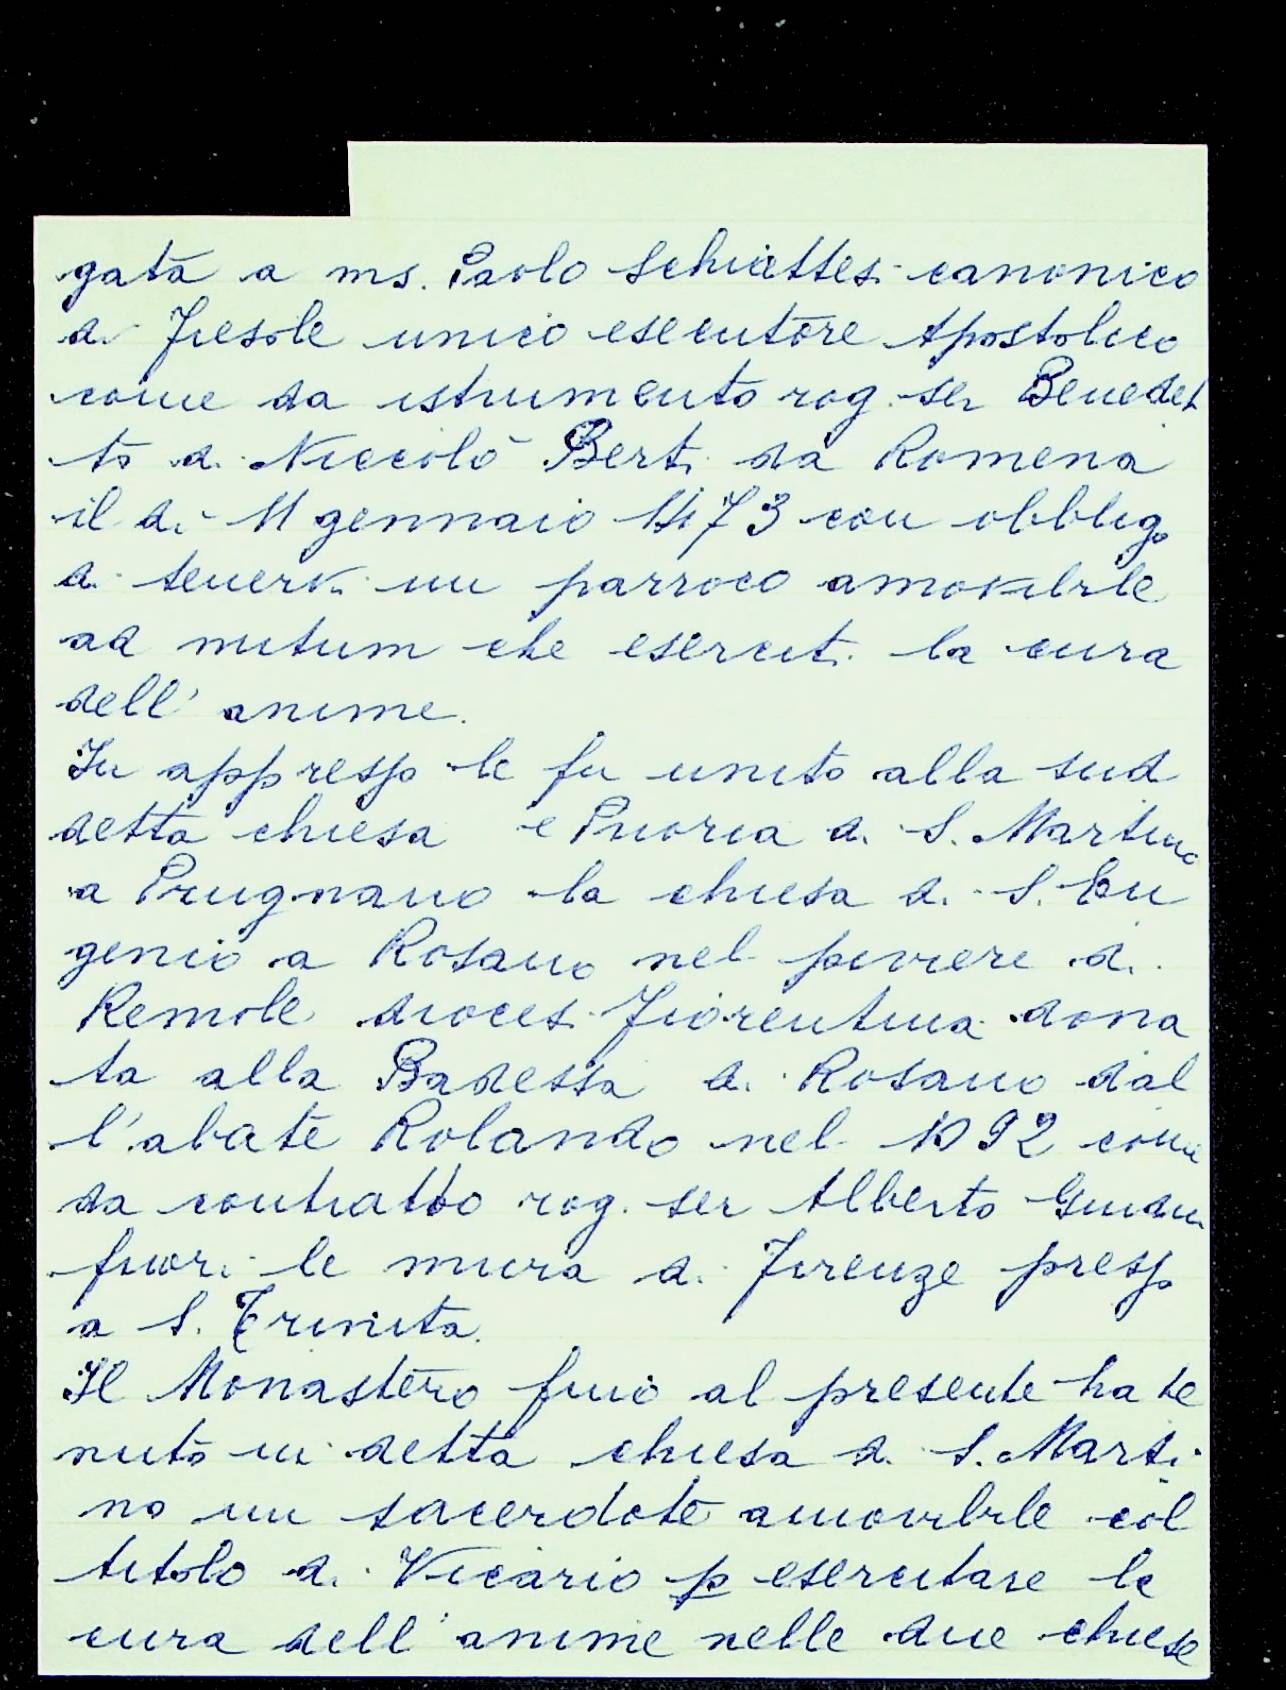 gata a ms. Paolo Schiattesi canonico
di Fiesole unico esecutore Apostolico
come da istrumento rog. ser Benedet
to di Niccolò Berti da Romena
il dì 11 gennaio 1473 con obbligo
di tenervi un parroco amovibile
ad nutum che eserciti la cura
dell' anime.
In appresso le fu unito alla sud
detta chiesa e Prioria di S. Martino
a Prugnano la chiesa di S. Eu
genio a Rosano nel piviere di
Remole dioces. Fiorentina dona
ta alla Badessa di Rosano dal
l'abate Rolando nel 1092 come
da contratto rog. ser Alberto
fuori le mura di Firenze presso
a S. Trinita.
Il Monastero fino al presente ha te
nuto in detta chiesa di S. Marti
no un sacerdote amovibile col
titolo di Vicario p esercitare le
cura dell' anime nelle due chiese